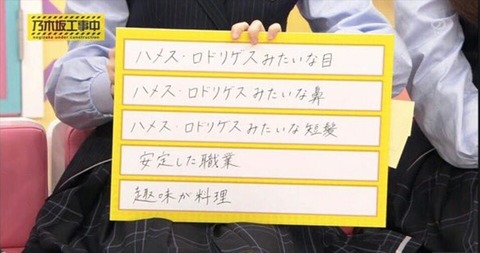 乃木坂工事中
nogizaka under construction
ハメス・ロドリゲスみたいな目
ハメス・ロドリゲスみたいな鼻
ハメス・ロドリゲスみたいな短髪
安定した職業
趣味が料理